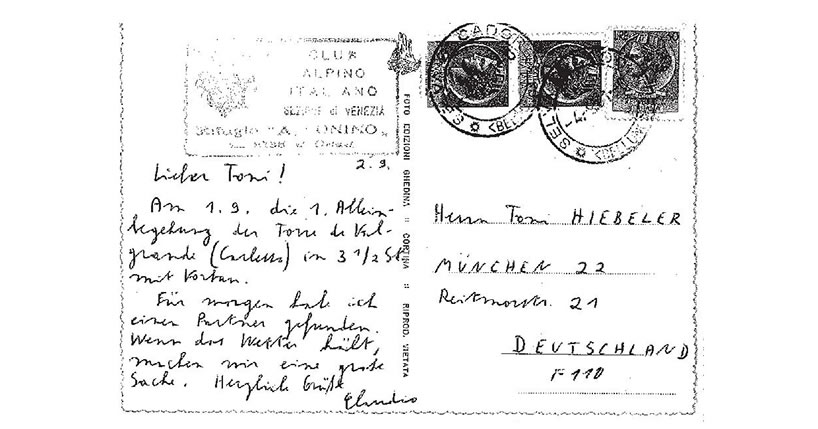 CLUB
ALPINO
ITALIANO
SEZIONE di VENEZIA
Rifugio
2.9.
Lieber Toni!
Am 1.9. die 1. Allein-
begehung der Torre de Val-
grande (Carlesso) in 3 1/2 St
mit Vorbau.
Für morgen habe ich
einen Partner gefunden.
Wenn das Wetter hält,
machen wir eine große
Sache. Herzliche Grüße
Claudio
FOTO EDIZIONI GHEDINA :: CORTINA :: RIPROD. VIETATA
CADORE
SELVA
Herrn Toni HIEBELER
MÜNCHEN 22
Reitmorstr. 21
DEUTSCHLAND
F 110